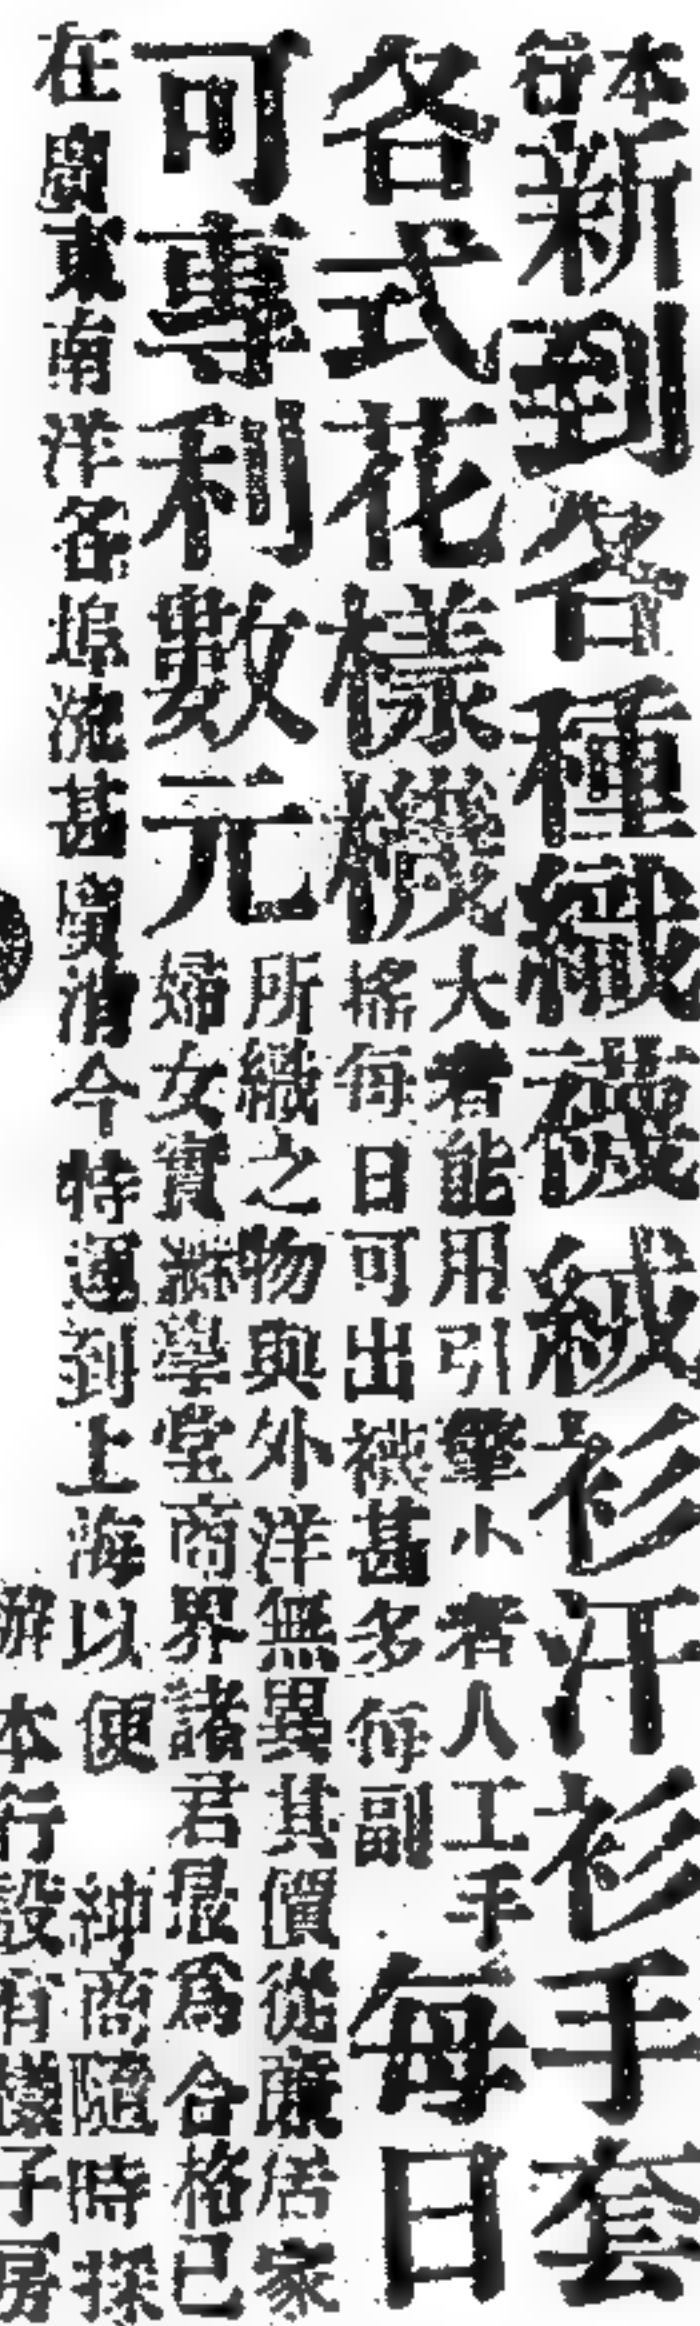 本行新到各種織襪絨衫汗衫手套
各式花樣機
大者能用引擎小者人工手
搖每日可出襪甚多每副
每日
可專利數元
所織之物與外洋無異其價從廉居家
婦女實學堂商界諸君最爲合格已
在廣東南洋各埠流甚廣消今特運到上海以便 紳商隨時採
辦本行設有子房